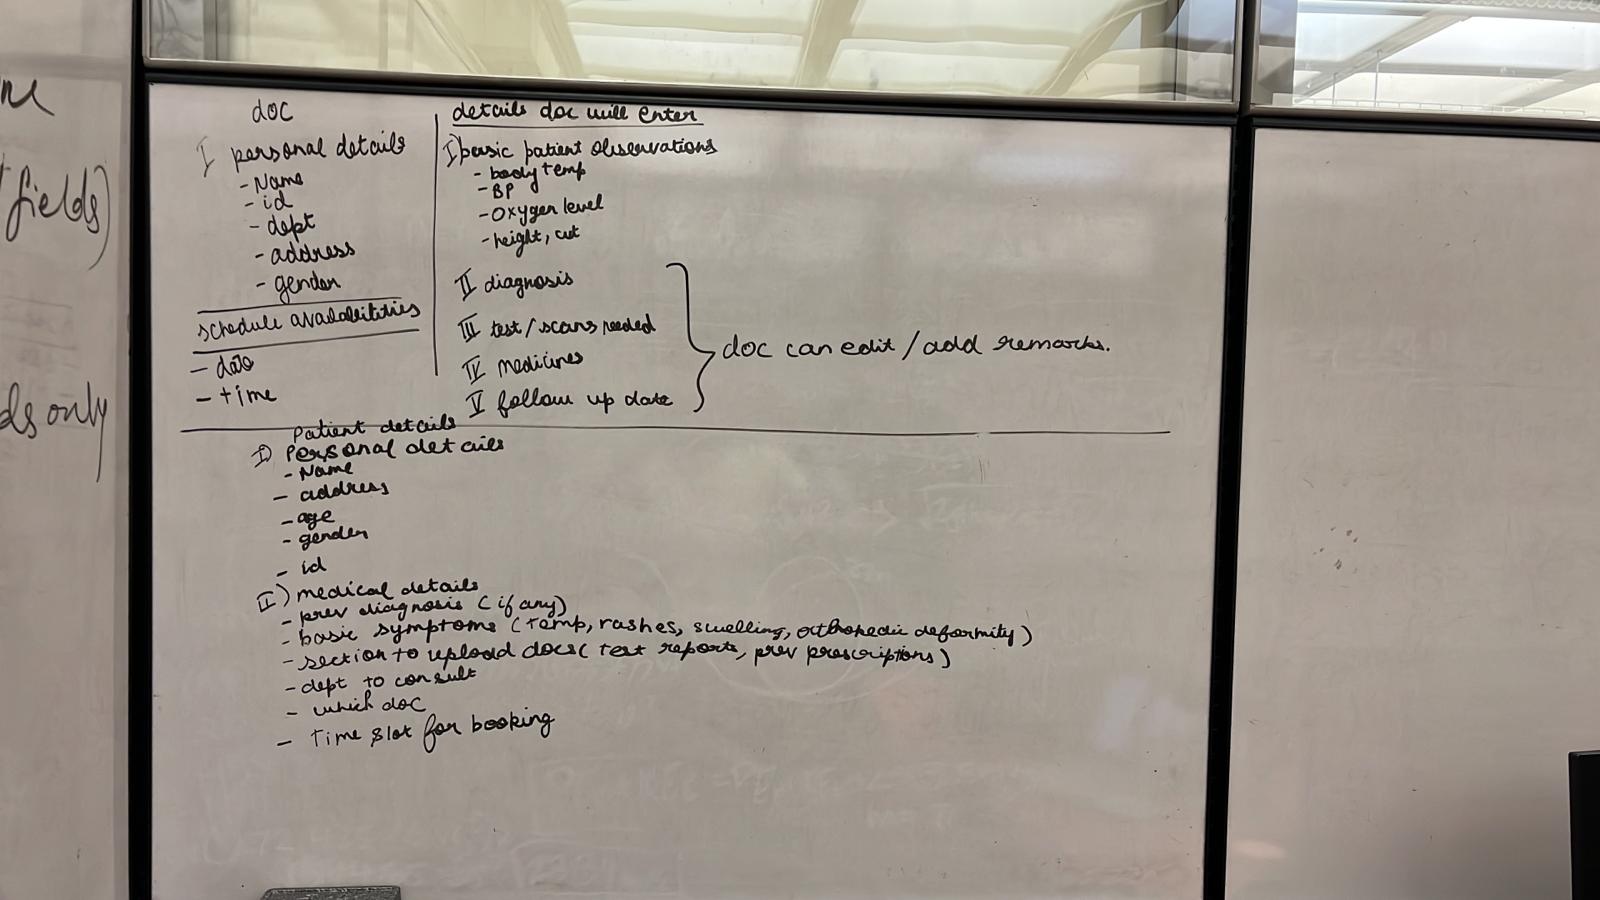 doc
I personal details
- Name
- id
- dept
- address
- gender
schedule availabilities
- date
- time
details doc will enter
I) basic patient observations
- body temp
- BP
- oxygen level
- height,
II diagnosis
III test/scans needed
IV medicines
V follow up date
doc can edit / add remarks.
Patient details
I) Personal details
- Name
- address
- age
- gender
- id
II) medical details
- prev diagnosis (if any)
- basic symptoms (temp, rashes, swelling, orthopedic deformity)
- section to upload docs (test reports, prev prescriptions)
- dept to consult
- which doc
- Time slot for booking
fields)
ds only